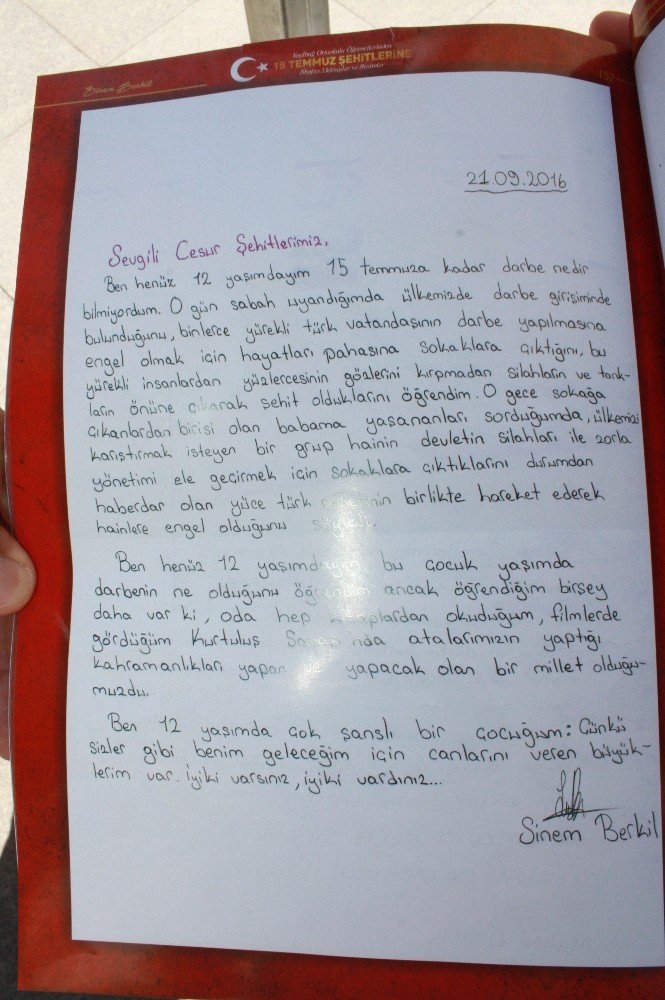 Yeşilbağ Ortaokulu Öğrencilerinden
15 TEMMUZ ŞEHİTLERİNE
İthafen Mektuplar ve Resimler
Sinem Berkil
152
21.09.2016
Sevgili Cesur Şehitlerimiz,
Ben henüz 12 yaşımdayım 15 temmuza kadar darbe nedir
bilmiyordum. O gün sabah uyandığımda ülkemizde darbe girişiminde
bulunduğunu, binlerce yürekli türk vatandaşının darbe yapılmasına
engel olmak için hayatları pahasına sokaklara çıktığını, bu
yürekli insanlardan yüzlercesinin gözlerini kırpmadan silahların ve tank-
ların önüne çıkarak şehit olduklarını öğrendim. O gece sokağa
çıkanlardan birisi olan babama yaşananları sorduğumda, ülkemizi
karıştırmak isteyen bir grup hainin devletin silahları ile zorla
yönetimi ele geçirmek için sokaklara çıktıklarını durumdan
haberdar olan yüce türk birlikte hareket ederek
hainlere engel olduğunu
Ben henüz 12 yaşımdayım bu çocuk yaşımda
darbenin ne olduğunu öğrendim ancak öğrendiğim birşey
daha var ki, oda hep kitaplardan okuduğum, filmlerde
gördüğüm Kurtuluş Savaşı'nda atalarımızın yaptığı
kahramanlıkları yapan yapacak olan bir millet olduğu-
muzdu.
Ben 12 yaşımda çok şanslı bir çocuğum: Çünkü
sizler gibi benim geleceğim için canlarını veren büyük-
lerim var. İyiki varsınız, iyiki vardınız...
Sinem Berkil